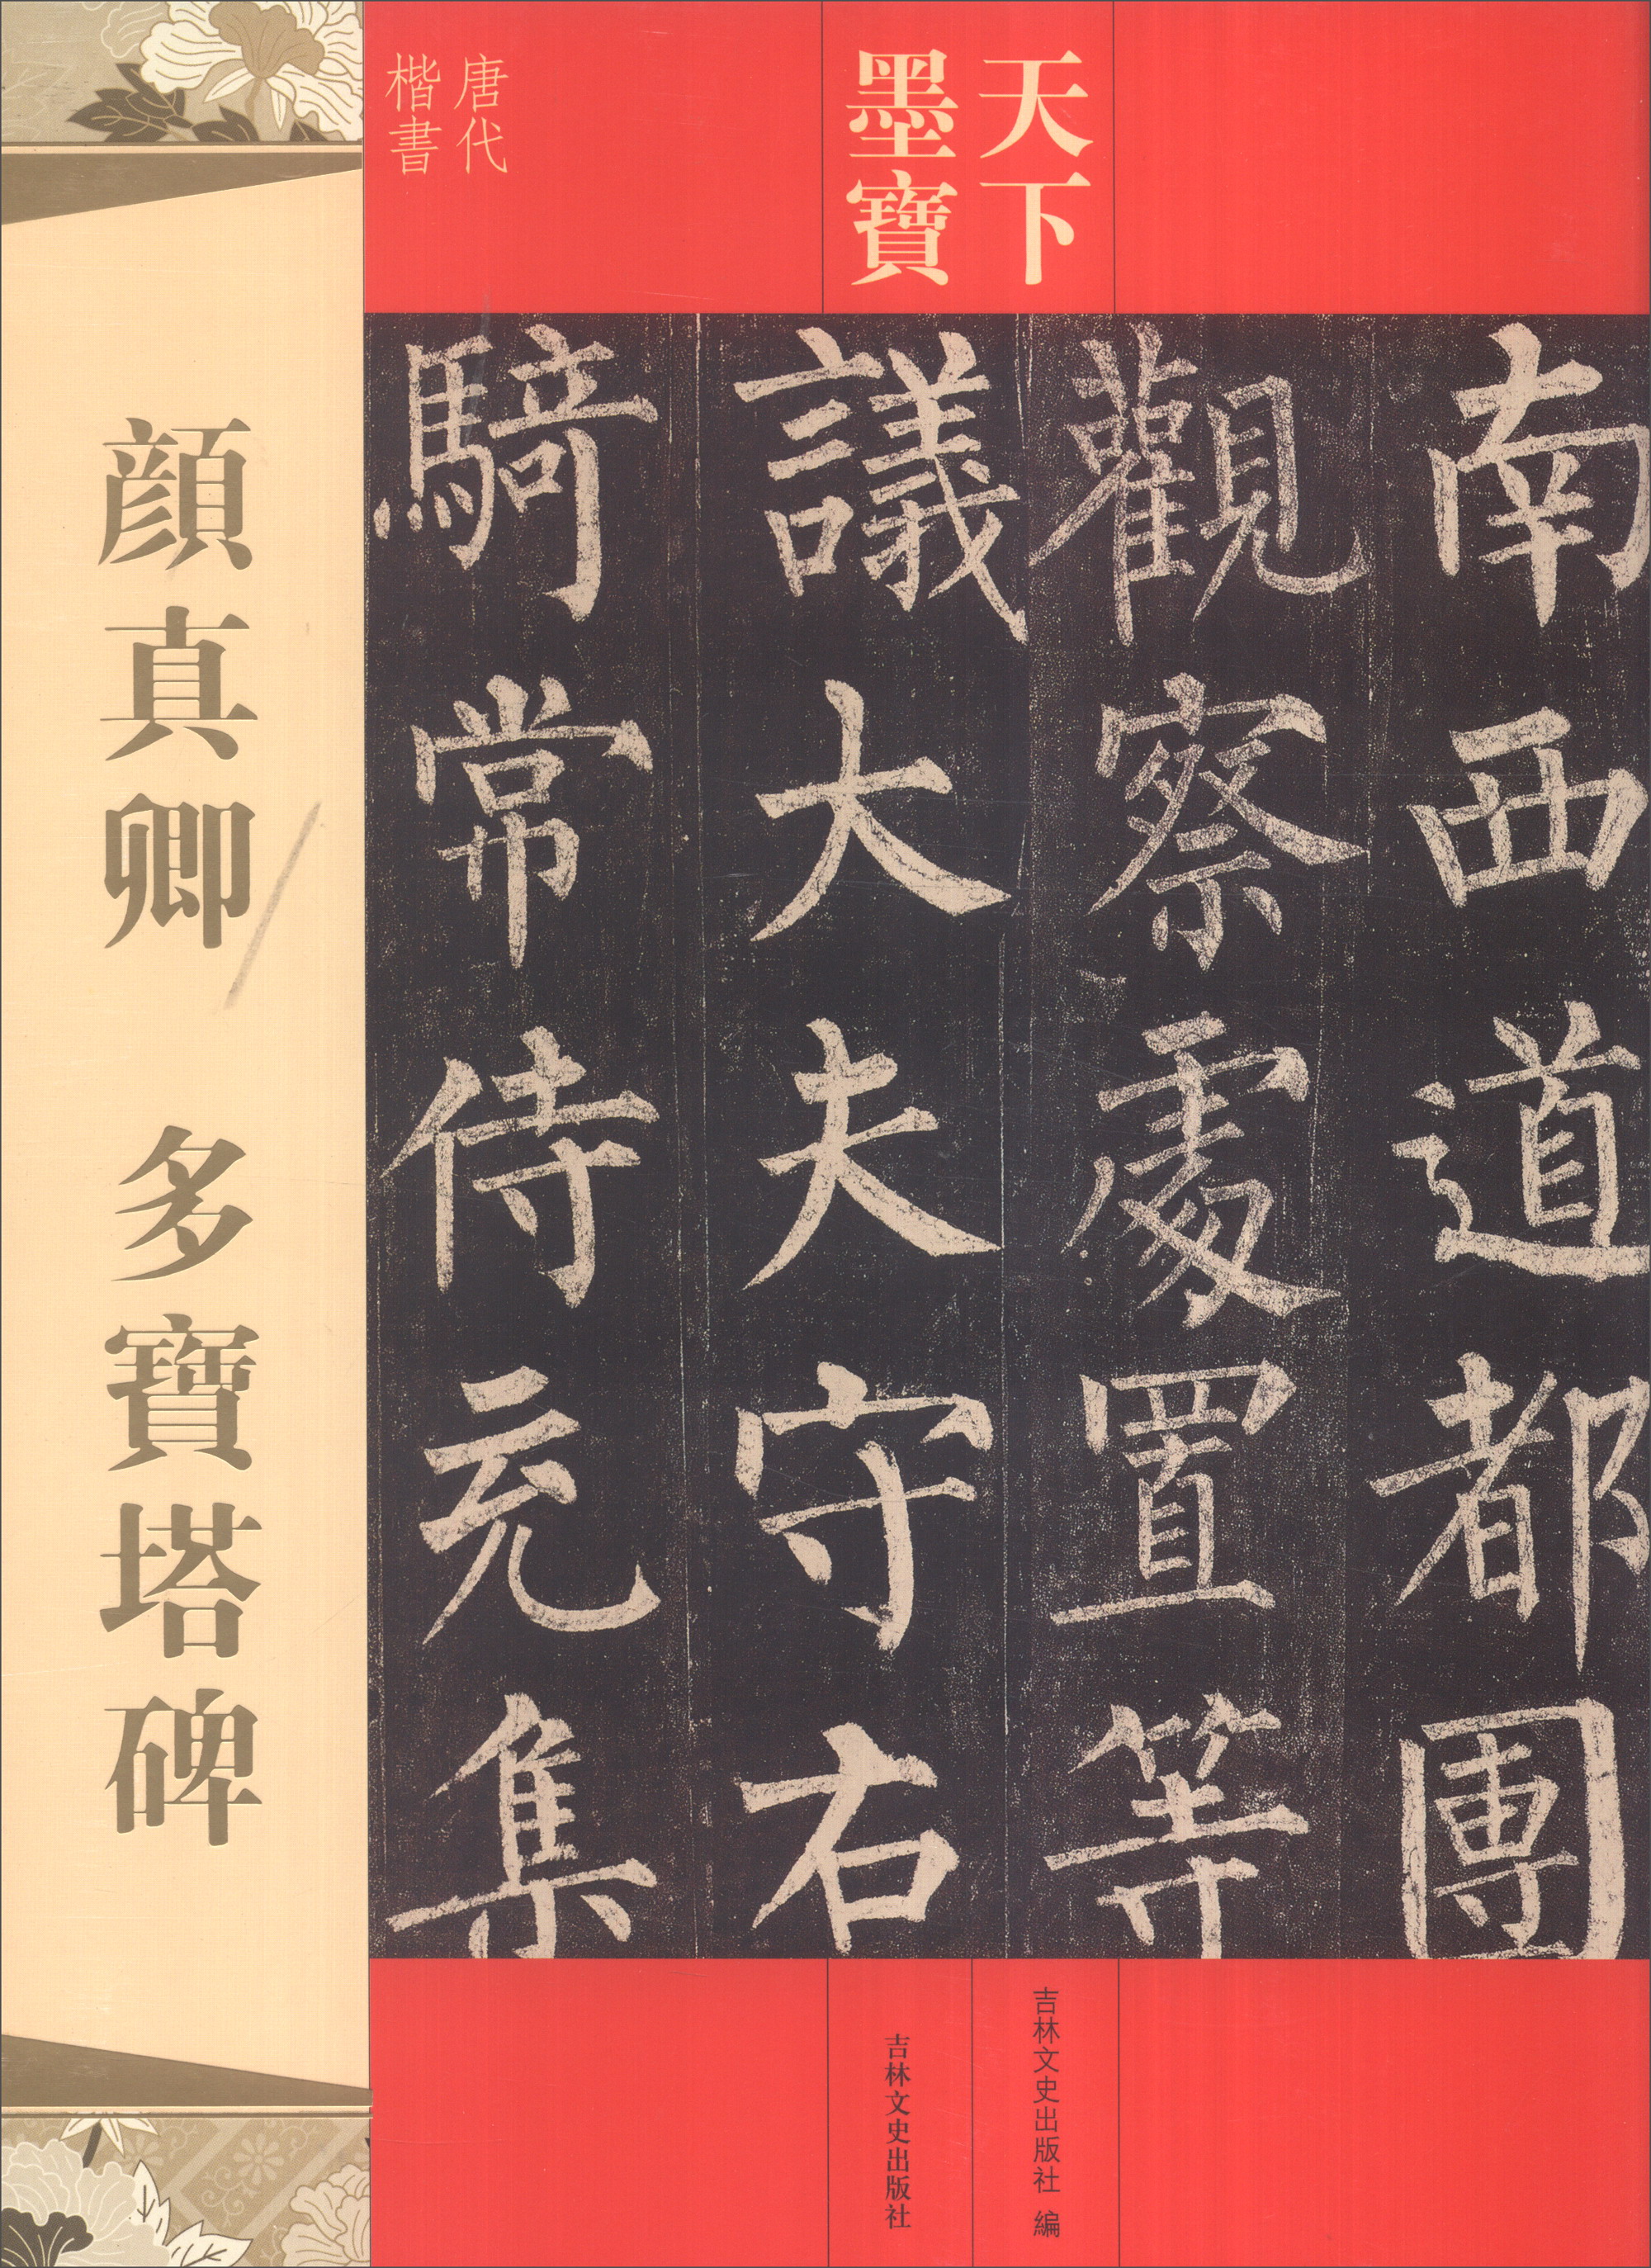 天下
墨寶
唐代
楷書
顔真卿
多寶塔碑
南西道都團
觀察處置等
議大夫守右
騎常侍充集
吉林文史出版社 編
吉林文史出版社